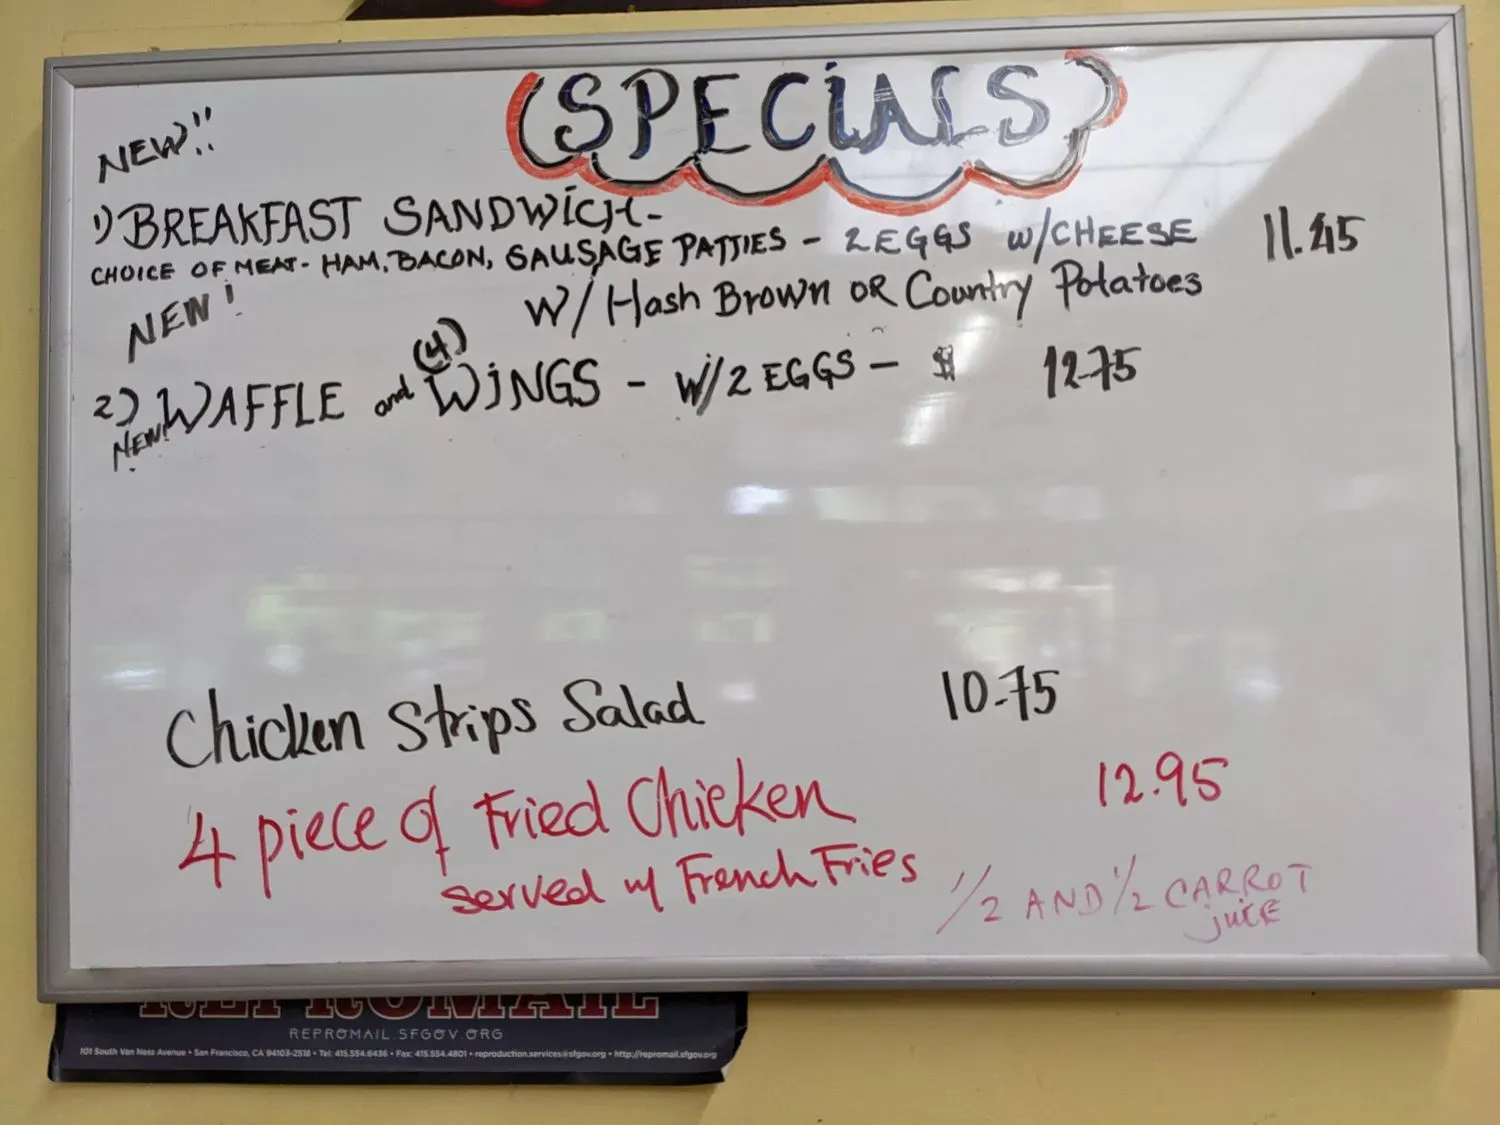 SPECIALS
NEW!!
1) BREAKFAST SANDWICH-
CHOICE OF MEAT- HAM, BACON, SAUSAGE PATTIES - 2 EGGS W/CHEESE 11.45
W/ Hash Brown OR Country Potatoes
NEW!
2) WAFFLE and (4) WINGS - W/2 EGGS - $ 12.75
NEW!
Chicken Strips Salad 10.75
4 piece of Fried Chicken 12.95
served w/ French Fries
1/2 AND 1/2 CARROT
juice
REPROMAIL
REPROMAIL.SFGOV.ORG
101 South Van Ness Avenue • San Francisco, CA 94103-2518 • Tel: 415.554.6436 • Fax: 415.554.4801 • reproduction.services@sfgov.org • http://repromail.sfgov.org